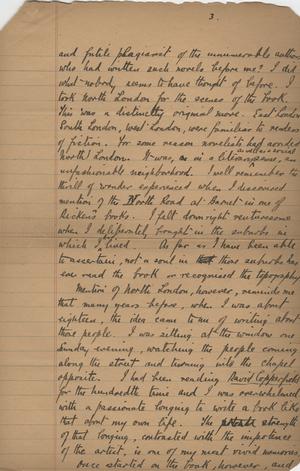 3.
and futile plagiarist of the innumerable authors
who had written such novels before me? I did
what nobody seems to have thought of before. I
took North London for the scenes of the book.
This was a distinctly original move. East London,
South London, West London, were familiar to readers
of fiction. For some reason novelists had avoided
North London. It was, and is, in a literary sense, an
unfashionable neighborhood. I well remember the
thrill of wonder experienced when I discovered
mention of the North Road at Barnet in one of
Dickens's books. I felt downright venturesome
when I deliberately brought in the suburbs in
which I lived. As far as I have been able
to ascertain, not a soul in those suburbs has
ever read the book or recognised the topography.
Mention of North London, however, reminds me
that many years before, when I was about
eighteen, the idea came to me of writing about
those people. I was sitting at the window one
Sunday evening, watching the people coming
along the street and turning into the chapel
opposite. I had been reading David Copperfield
for the hundredth time and I was overwhelmed
with a passionate longing to write a book like
that about my own life. The strength
of that longing, contrasted with the impotence
of the artist, is one of my most vivid memories.
Once started on the book, however, and